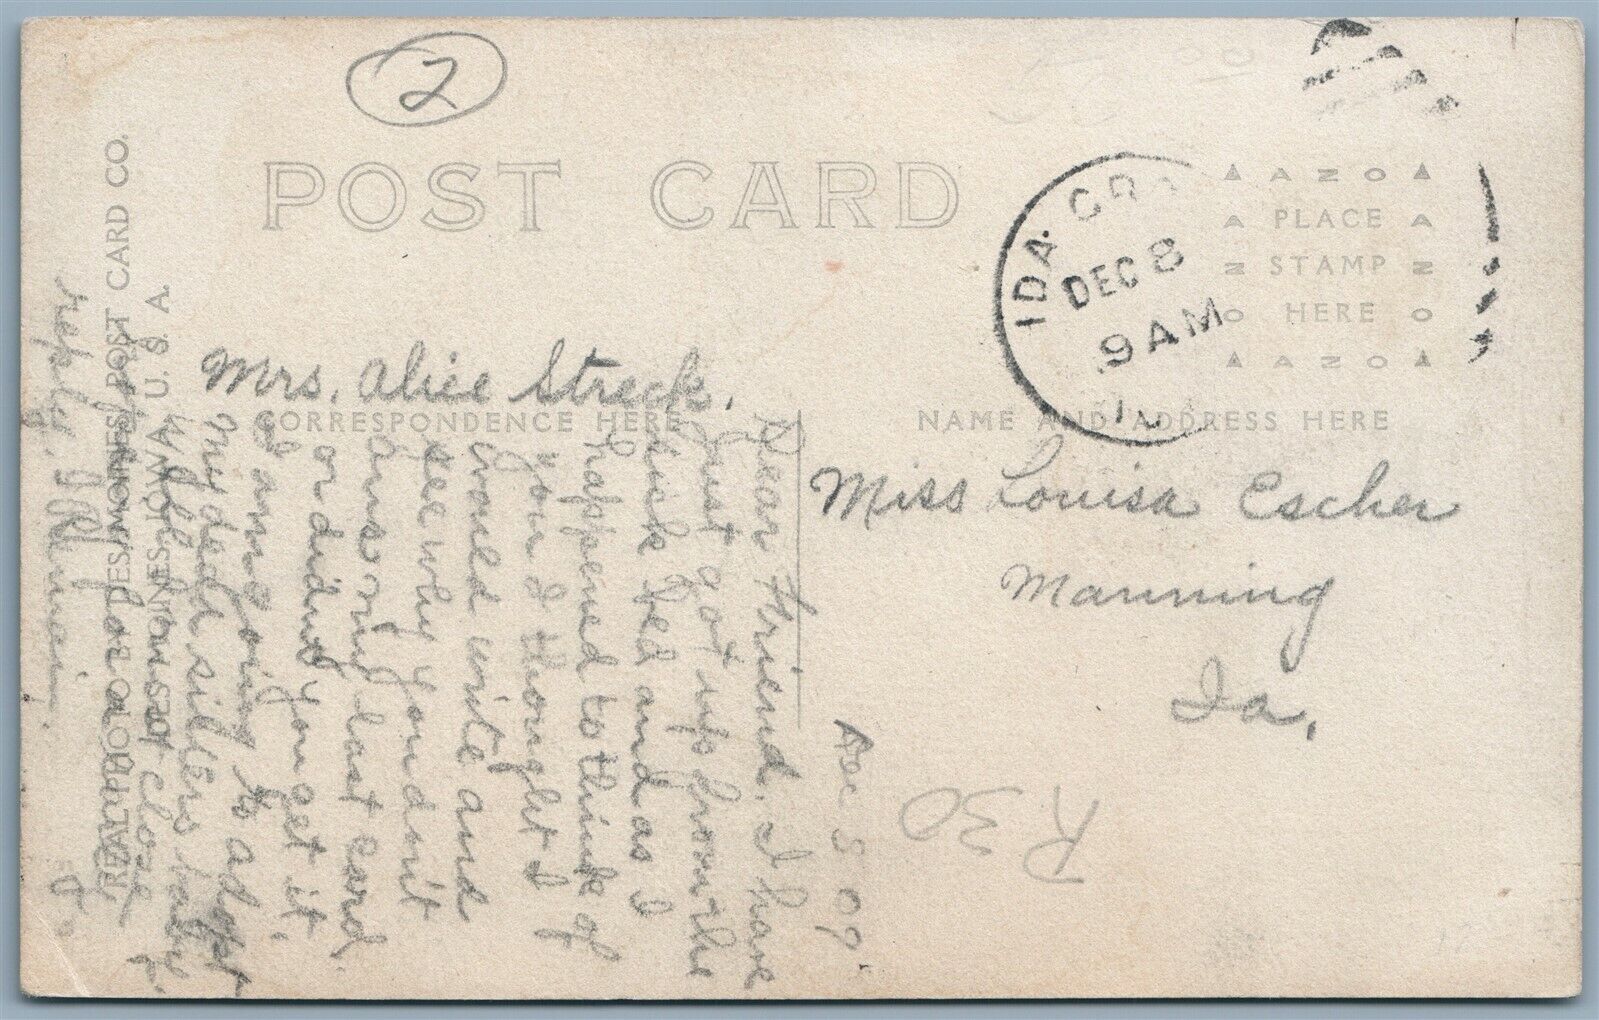 2
POST CARD
REAL PHOTO BY DES MOINES POST CARD CO.
DES MOINES IOWA, U. S. A.
CORRESPONDENCE HERE
NAME AND ADDRESS HERE
AZO
PLACE
STAMP
HERE
AZO
IDA. GR
DEC 8
9 AM
Miss Louisa Escher
Manning
Ia,
R30
Dec 5 07
Dear Friend, I have
just got up from the
sick bed and as I
happened to think of
you I thought I
would write and
see why you don't
ans my last card.
or didnt you get it.
I am going to adopt
my dead sisters baby.
Well I must close
for a
reply, I Remain.
Mrs. Alice Streck.